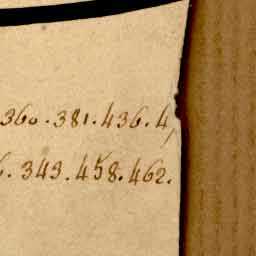 360.381.436.4,
. 343.458.462.